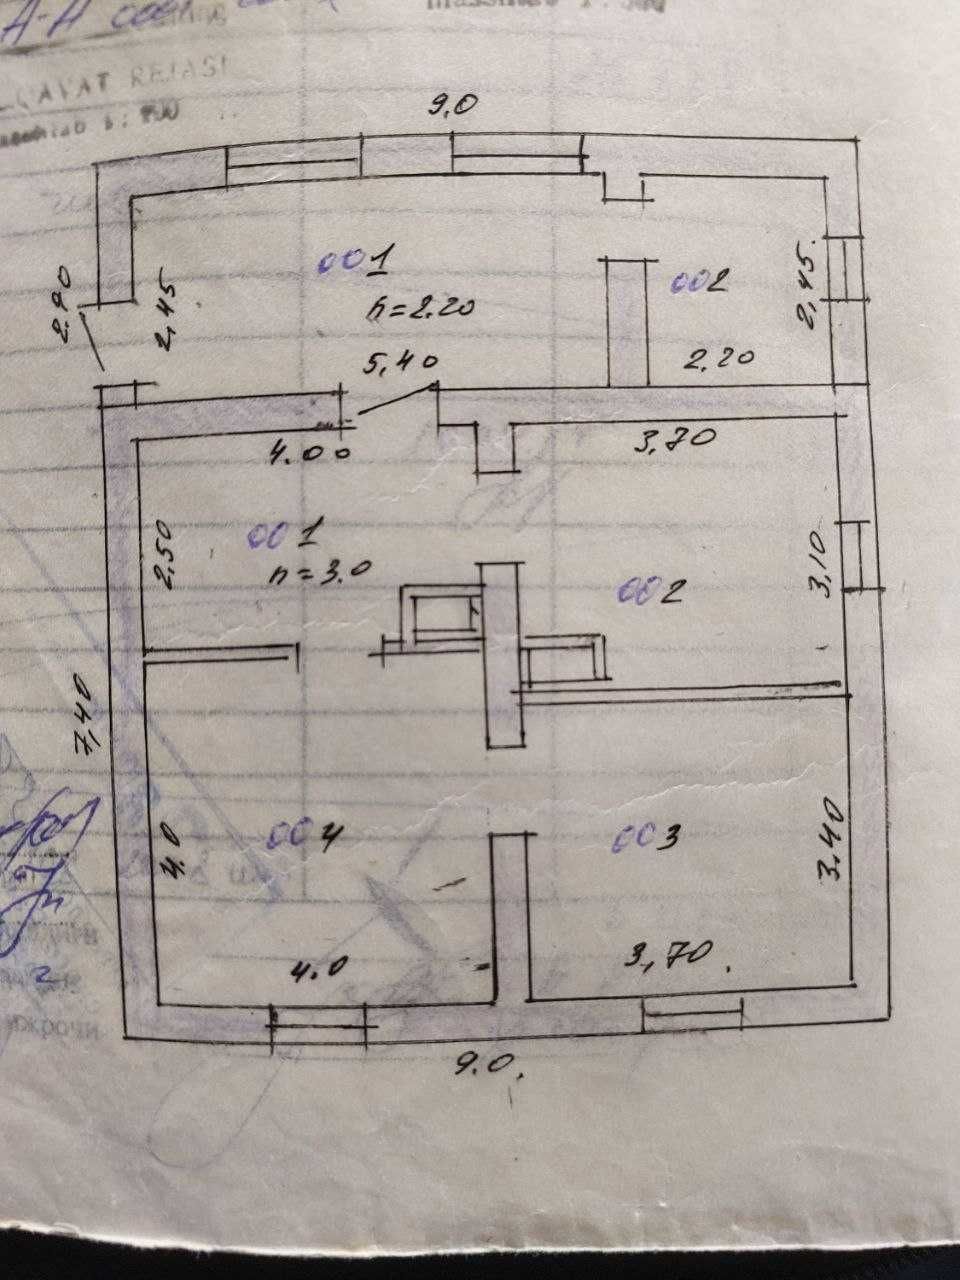 A-A
REJASI
9,0
001
h=2.20
002
2,45.
2.90
2,45
5,40
2,20
4.00
3,70
001
h=3.0
2,50
002
3,10
7,40
004
003
4.0
3.40
4.0
3,70.
9.0.